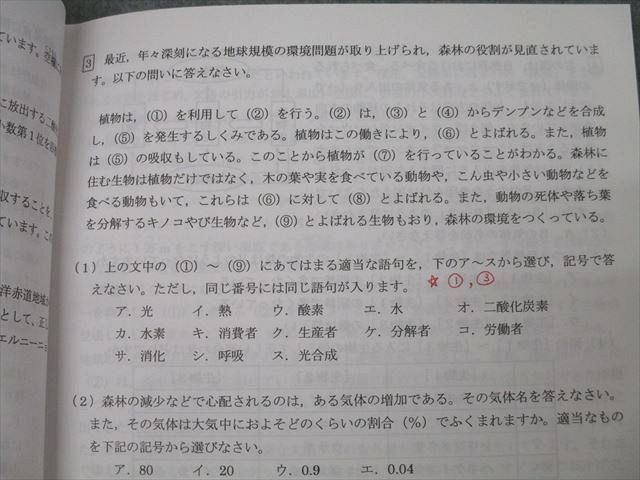 ています。空欄に
に放出する二酸
小数第1位を四
収することを
ています。この
洋赤道地域の
として，正し
エルニーニョ
3 最近，年々深刻になる地球規模の環境問題が取り上げられ，森林の役割が見直されていま
す。以下の問いに答えなさい。
植物は，(①) を利用して (②) を行う。(②) は，(③) と (④) からデンプンなどを合成
し，(⑤) を発生するしくみである。植物はこの働きにより，(⑥) とよばれる。また，植物
は (⑤) の吸収もしている。このことから植物が (⑦) を行っていることがわかる。森林に
住む生物は植物だけではなく，木の葉や実を食べている動物や，こん虫や小さい動物などを
食べる動物もいて，これらは (⑥) に対して (⑧) とよばれる。また，動物の死体や落ち葉
を分解するキノコやび生物など，(⑨) とよばれる生物もおり，森林の環境をつくっている。
(1) 上の文中の (①) ～ (⑨) にあてはまる適当な語句を，下のア～スから選び，記号で答
えなさい。ただし，同じ番号には同じ語句が入ります。 ☆ ①，③
ア．光 イ．熱 ウ．酸素 エ．水 オ．二酸化炭素
カ．水素 キ．消費者 ク．生産者 ケ．分解者 コ．労働者
サ．消化 シ．呼吸 ス．光合成
(2) 森林の減少などで心配されるのは，ある気体の増加である。その気体名を答えなさい。
また，その気体は大気中におよそどのくらいの割合（%）でふくまれますか。適当なもの
を下記の記号から選びなさい。
ア．80 イ．20 ウ．0.9 エ．0.04